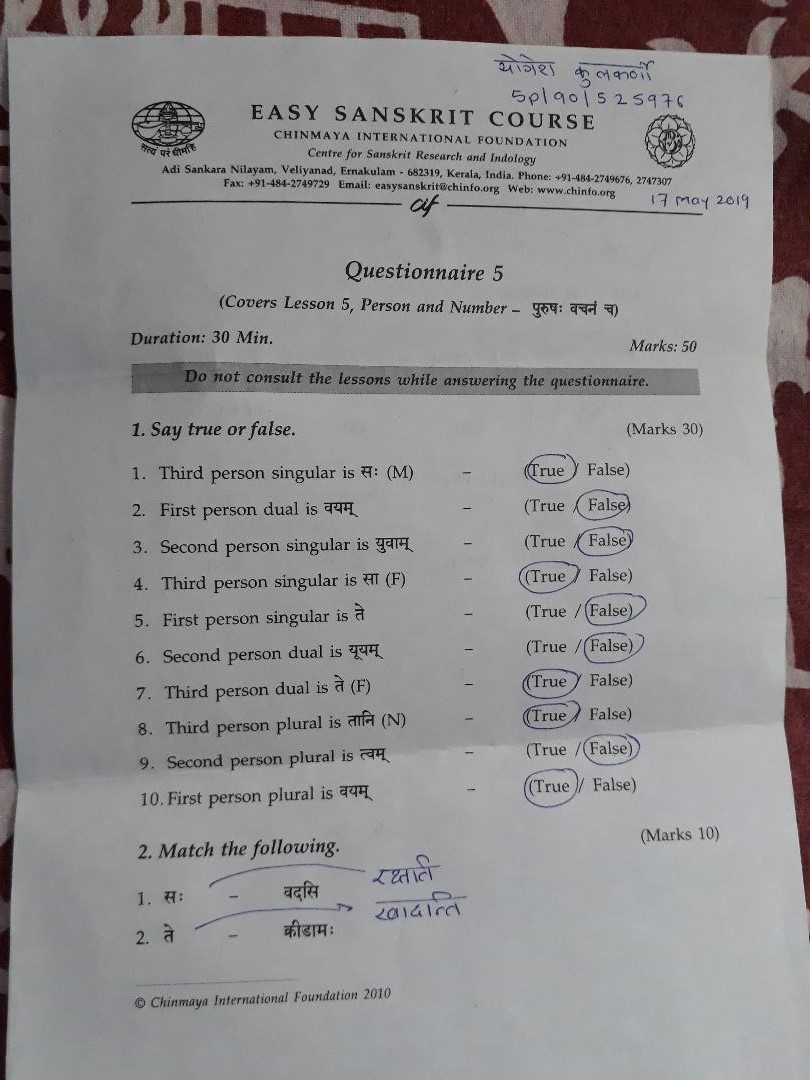 योगेश कुलकर्णी
Sp/90/525976
EASY SANSKRIT COURSE
CHINMAYA INTERNATIONAL FOUNDATION
Centre for Sanskrit Research and Indology
सत्यं परं धीमहि
Adi Sankara Nilayam, Veliyanad, Ernakulam - 682319, Kerala, India. Phone: +91-484-2749676, 2747307
Fax: +91-484-2749729 Email: easysanskrit@chinfo.org Web: www.chinfo.org
17 May 2019
Questionnaire 5
(Covers Lesson 5, Person and Number – पुरुषः वचनं च)
Duration: 30 Min. Marks: 50
Do not consult the lessons while answering the questionnaire.
1. Say true or false. (Marks 30)
1. Third person singular is सः (M) – (True / False)
2. First person dual is वयम् – (True / False)
3. Second person singular is युवाम् – (True / False)
4. Third person singular is सा (F) – (True / False)
5. First person singular is ते – (True / False)
6. Second person dual is यूयम् – (True / False)
7. Third person dual is ते (F) – (True / False)
8. Third person plural is तानि (N) – (True / False)
9. Second person plural is त्वम् – (True / False)
10. First person plural is वयम् – (True / False)
2. Match the following. (Marks 10)
1. सः – वदसि रक्षति
2. ते – क्रीडामः खादन्ति
© Chinmaya International Foundation 2010